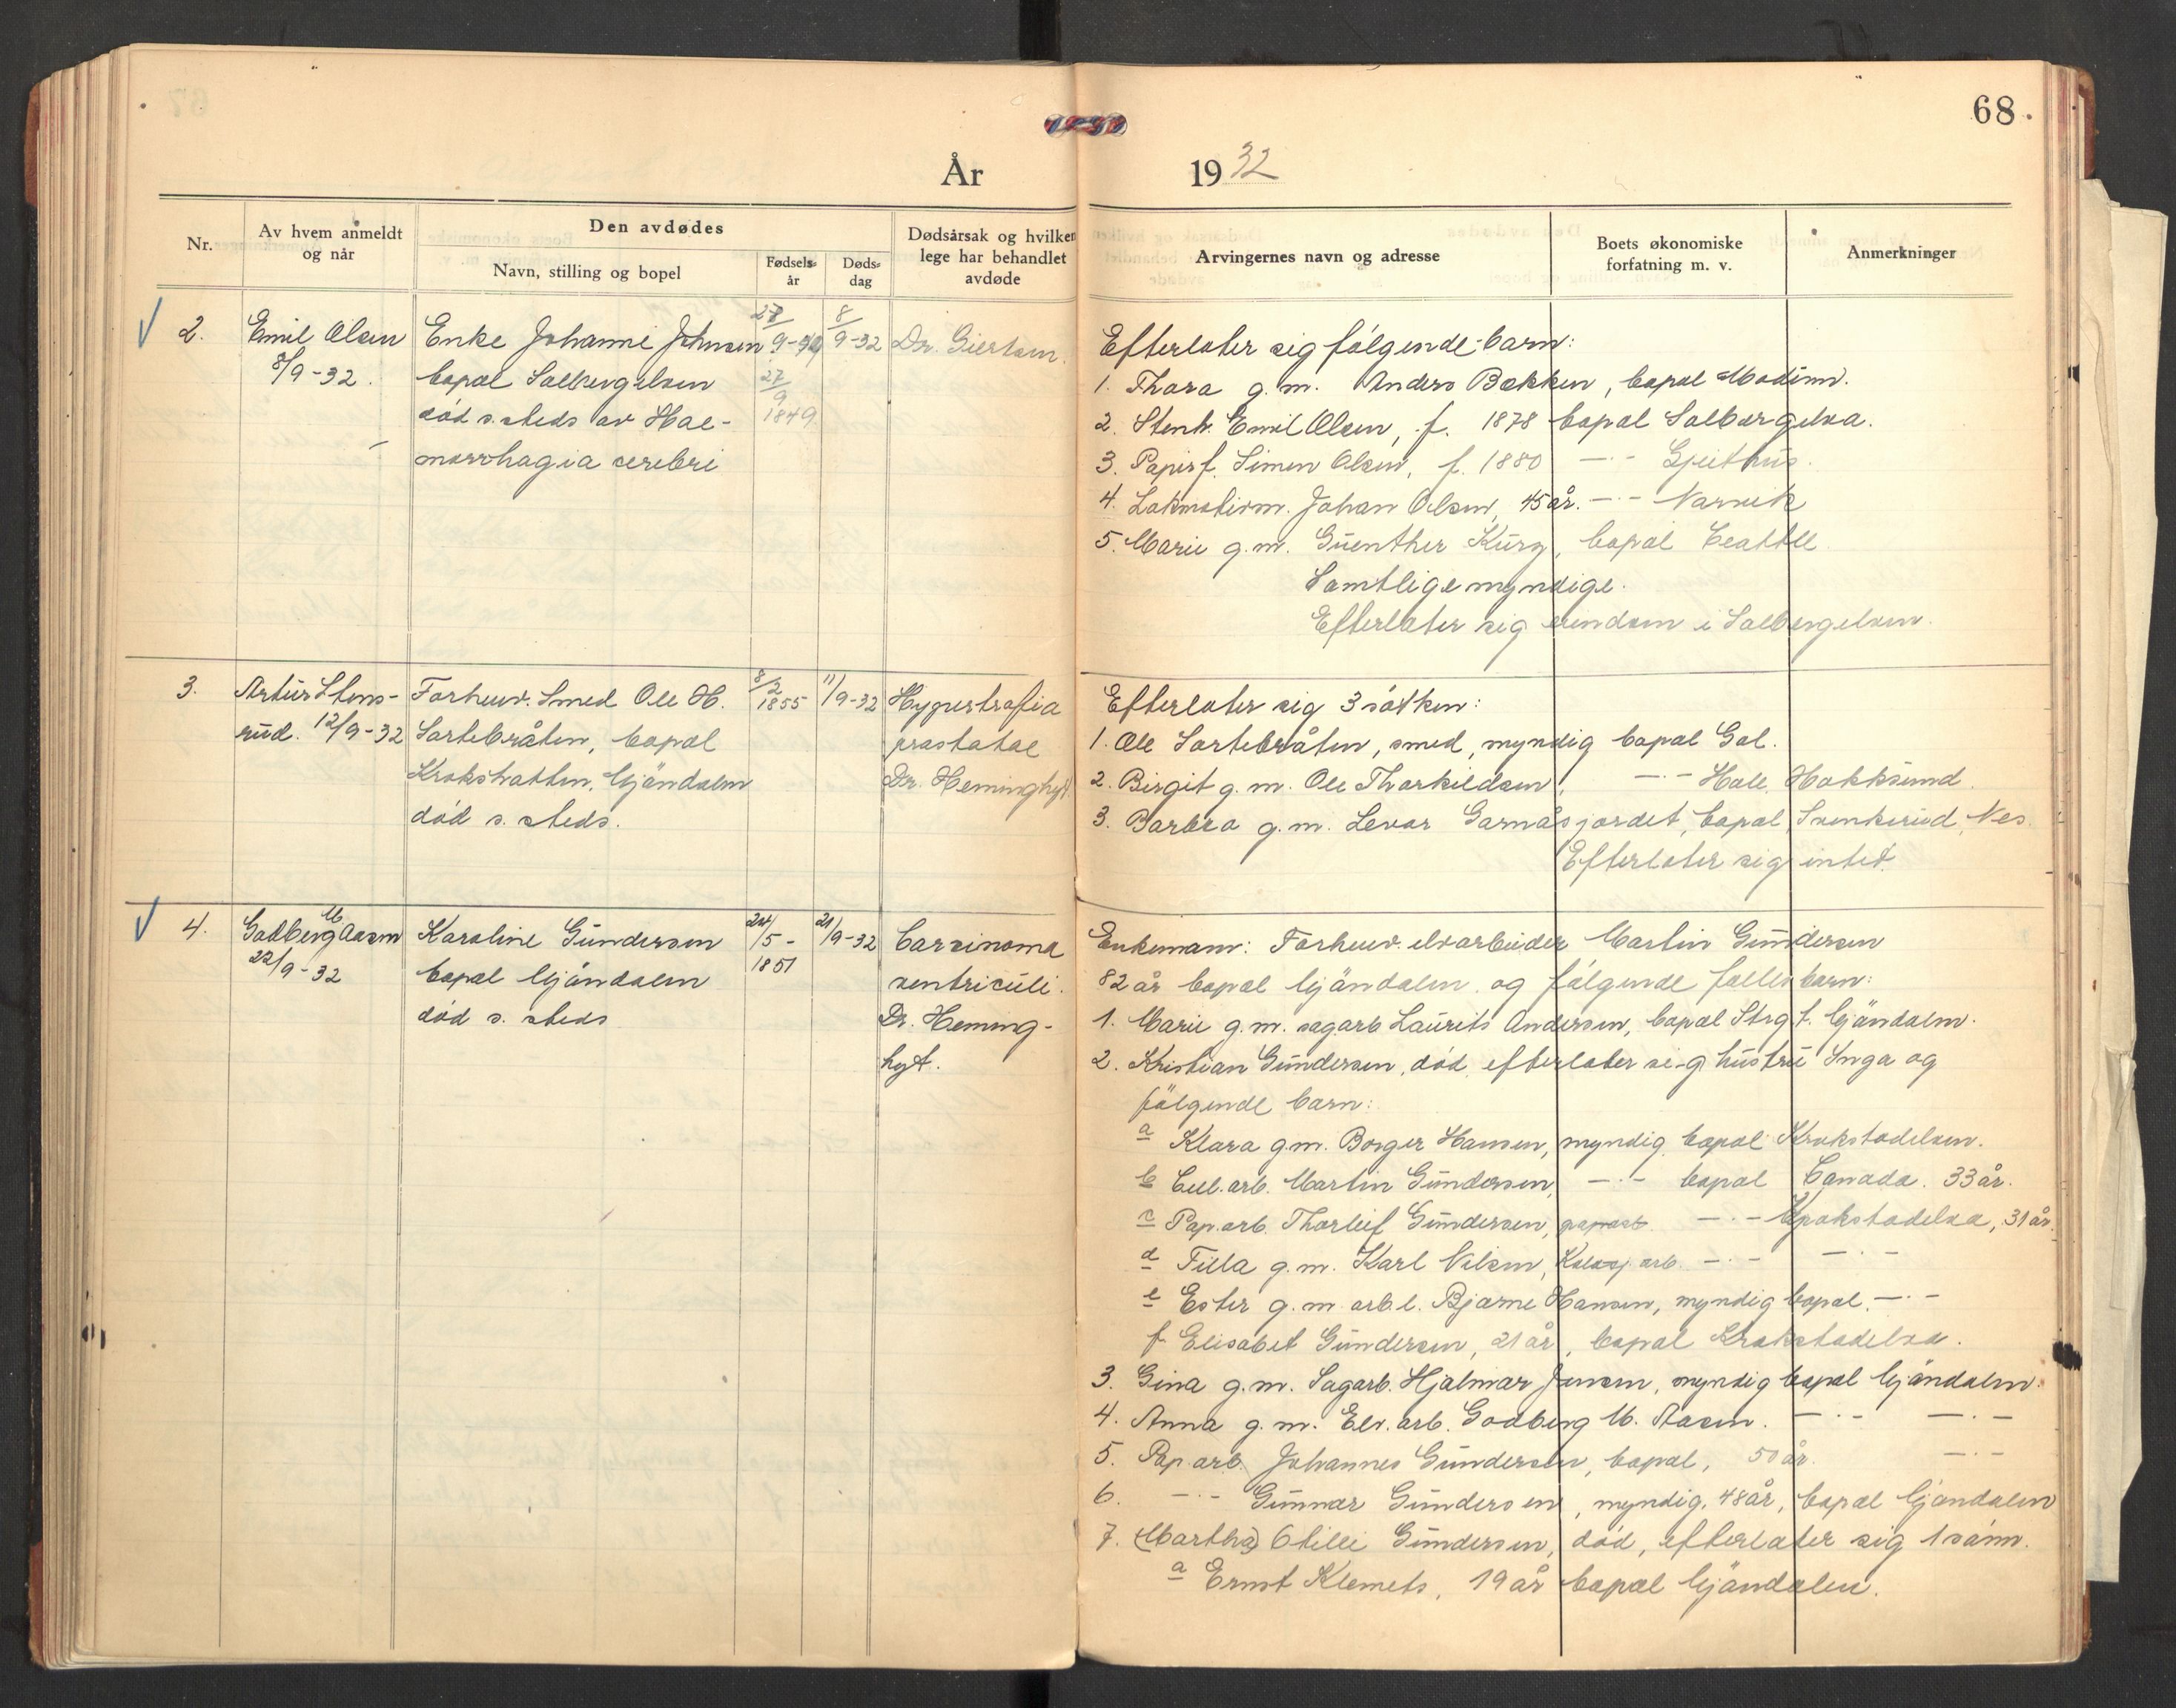 68.
År 1932
Nr.
Av hvem anmeldt
og når
Den avdødes
Navn, stilling og bopel
Fødsels-
år
Døds-
dag
Dødsårsak og hvilken
lege har behandlet
avdøde
Arvingernes navn og adresse
Boets økonomiske
forfatning m. v.
Anmerkninger
2.
Emil Olsen
8/9-32.
Enke Johanne Johnsen
bopæl Solbergelven
død s. steds av Hae-
morrhagia cerebri
27/9
1849
8/9-32
Dr. Giertsen.
Efterlater sig følgende barn:
1. Thora g.m. Anders Bækken, bopæl Modum.
2. Stenh. Emil Olsen, f. 1878 bopæl Solbergelva.
3. Papirf. Simen Olsen, f. 1880 —·— Geithus.
4. Lokmotivm. Johan Olsen, 45 år. —·— Narvik
5. Marie g.m. Guenther Kurz, bopæl Ceattle
Samtlige myndige.
Efterlater sig eiendom i Solbergelven.
3.
Artur Stens-
rud. 12/9-32
Forhenv. Smed Ole H.
Sortebråten, bopæl
Krokstratten, Mjöndalen
død s. steds.
8/2
1855
11/9-32
Hypertrofia
prostatae
Dr. Heminghyt
Efterlater sig 3 søsken:
1. Ole Sortebråten, smed, myndig bopæl Gol.
2. Birgit g. m. Ole Thorkildsen, —·— Hole, Hokksund.
3. Barbra g.m. Levor Garnåsjordet, bopæl Svenkerud, Nes.
Efterlater sig intet.
4.
Godberg M Aasen
22/9-32
Karoline Gundersen
bopæl Mjöndalen
død s. steds
24/5-
1851
21/9-32
Carsinoma
ventriculi.
Dr. Heming-
hyt.
Enkemann: Forhenv. elvarbeider Martin Gundersen
82 år bopæl Mjöndalen og følgende fellesbarn:
1. Marie g.m. sagarb Laurits Andersen, bopæl Strgt. Mjöndalen.
2. Kristian Gundersen, død, efterlater sig hustru Inga og
følgende barn:
a Klara g.m. Borger Hansen, myndig bopæl Krokstadelven.
b Cell.arb. Martin Gundersen, —·— bopæl Canada. 33 år.
c Pap.arb. Thorleif Gundersen, —·— Krokstadelva, 31 år.
d Tilla g.m. Karl Nilsen, arb. —·— —·—
e Ester g.m. arb.l. Bjarne Hansen, myndig bopæl. —·—
f Elisabet Gundersen, 21 år, bopæl Krokstadelva.
3. Gina g.m. Sagarb. Hjalmar Jensen, myndig bopæl Mjöndalen.
4. Anna g.m. Elv.arb. Godberg M. Aasen. —·— —·—
5. Pap.arb. Johannes Gundersen, bopæl, 50 år. —·—
6. —·— Gunnar Gundersen, myndig, 48 år, bopæl Mjöndalen
7. (Martha) Otilie Gundersen, død, efterlater sig 1 sønn.
a Ernst Klemets, 19 år bopæl Mjöndalen.